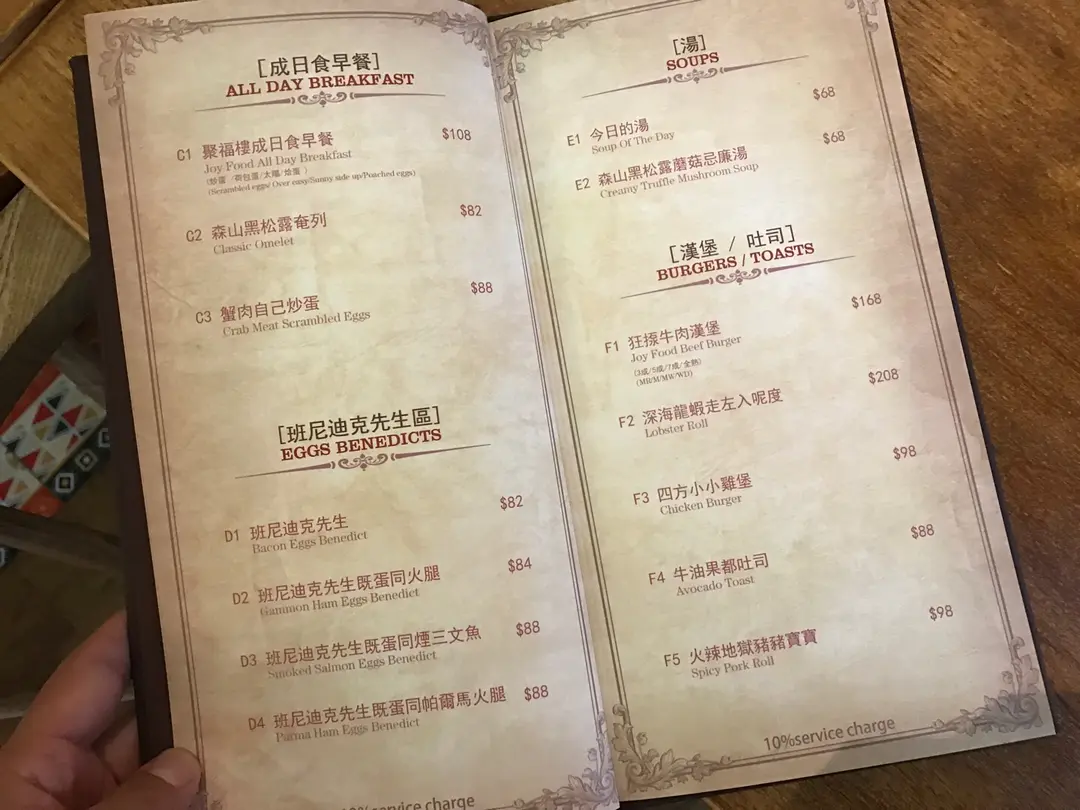 [成日食早餐]
ALL DAY BREAKFAST
C1 聚福樓成日食早餐 $108
Joy Food All Day Breakfast
(炒蛋/荷包蛋/太陽/烚蛋)
(Scrambled eggs/Over easy/Sunny side up/Poached eggs)
C2 森山黑松露奄列 $82
Classic Omelet
C3 蟹肉自己炒蛋 $88
Crab Meat Scrambled Eggs
[班尼迪克先生區]
EGGS BENEDICTS
D1 班尼迪克先生 $82
Bacon Eggs Benedict
D2 班尼迪克先生既蛋同火腿 $84
Gammon Ham Eggs Benedict
D3 班尼迪克先生既蛋同煙三文魚 $88
Smoked Salmon Eggs Benedict
D4 班尼迪克先生既蛋同帕爾馬火腿 $88
Parma Ham Eggs Benedict
10%service charge
[湯]
SOUPS
E1 今日的湯 $68
Soup Of The Day
E2 森山黑松露蘑菇忌廉湯 $68
Creamy Truffle Mushroom Soup
[漢堡 / 吐司]
BURGERS / TOASTS
F1 狂揼牛肉漢堡 $168
Joy Food Beef Burger
(3成/5成/7成/全熟)
(MR/M/MW/WD)
F2 深海龍蝦走左入呢度 $208
Lobster Roll
F3 四方小小雞堡 $98
Chicken Burger
F4 牛油果都吐司 $88
Avocado Toast
F5 火辣地獄豬豬寶寶 $98
Spicy Pork Roll
10%service charge